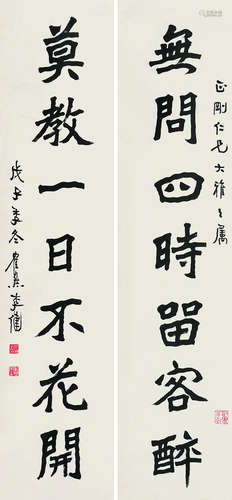 正剛仁兄大雅之屬
無問四時留客醉
莫教一日不花開
戊子季冬 李健